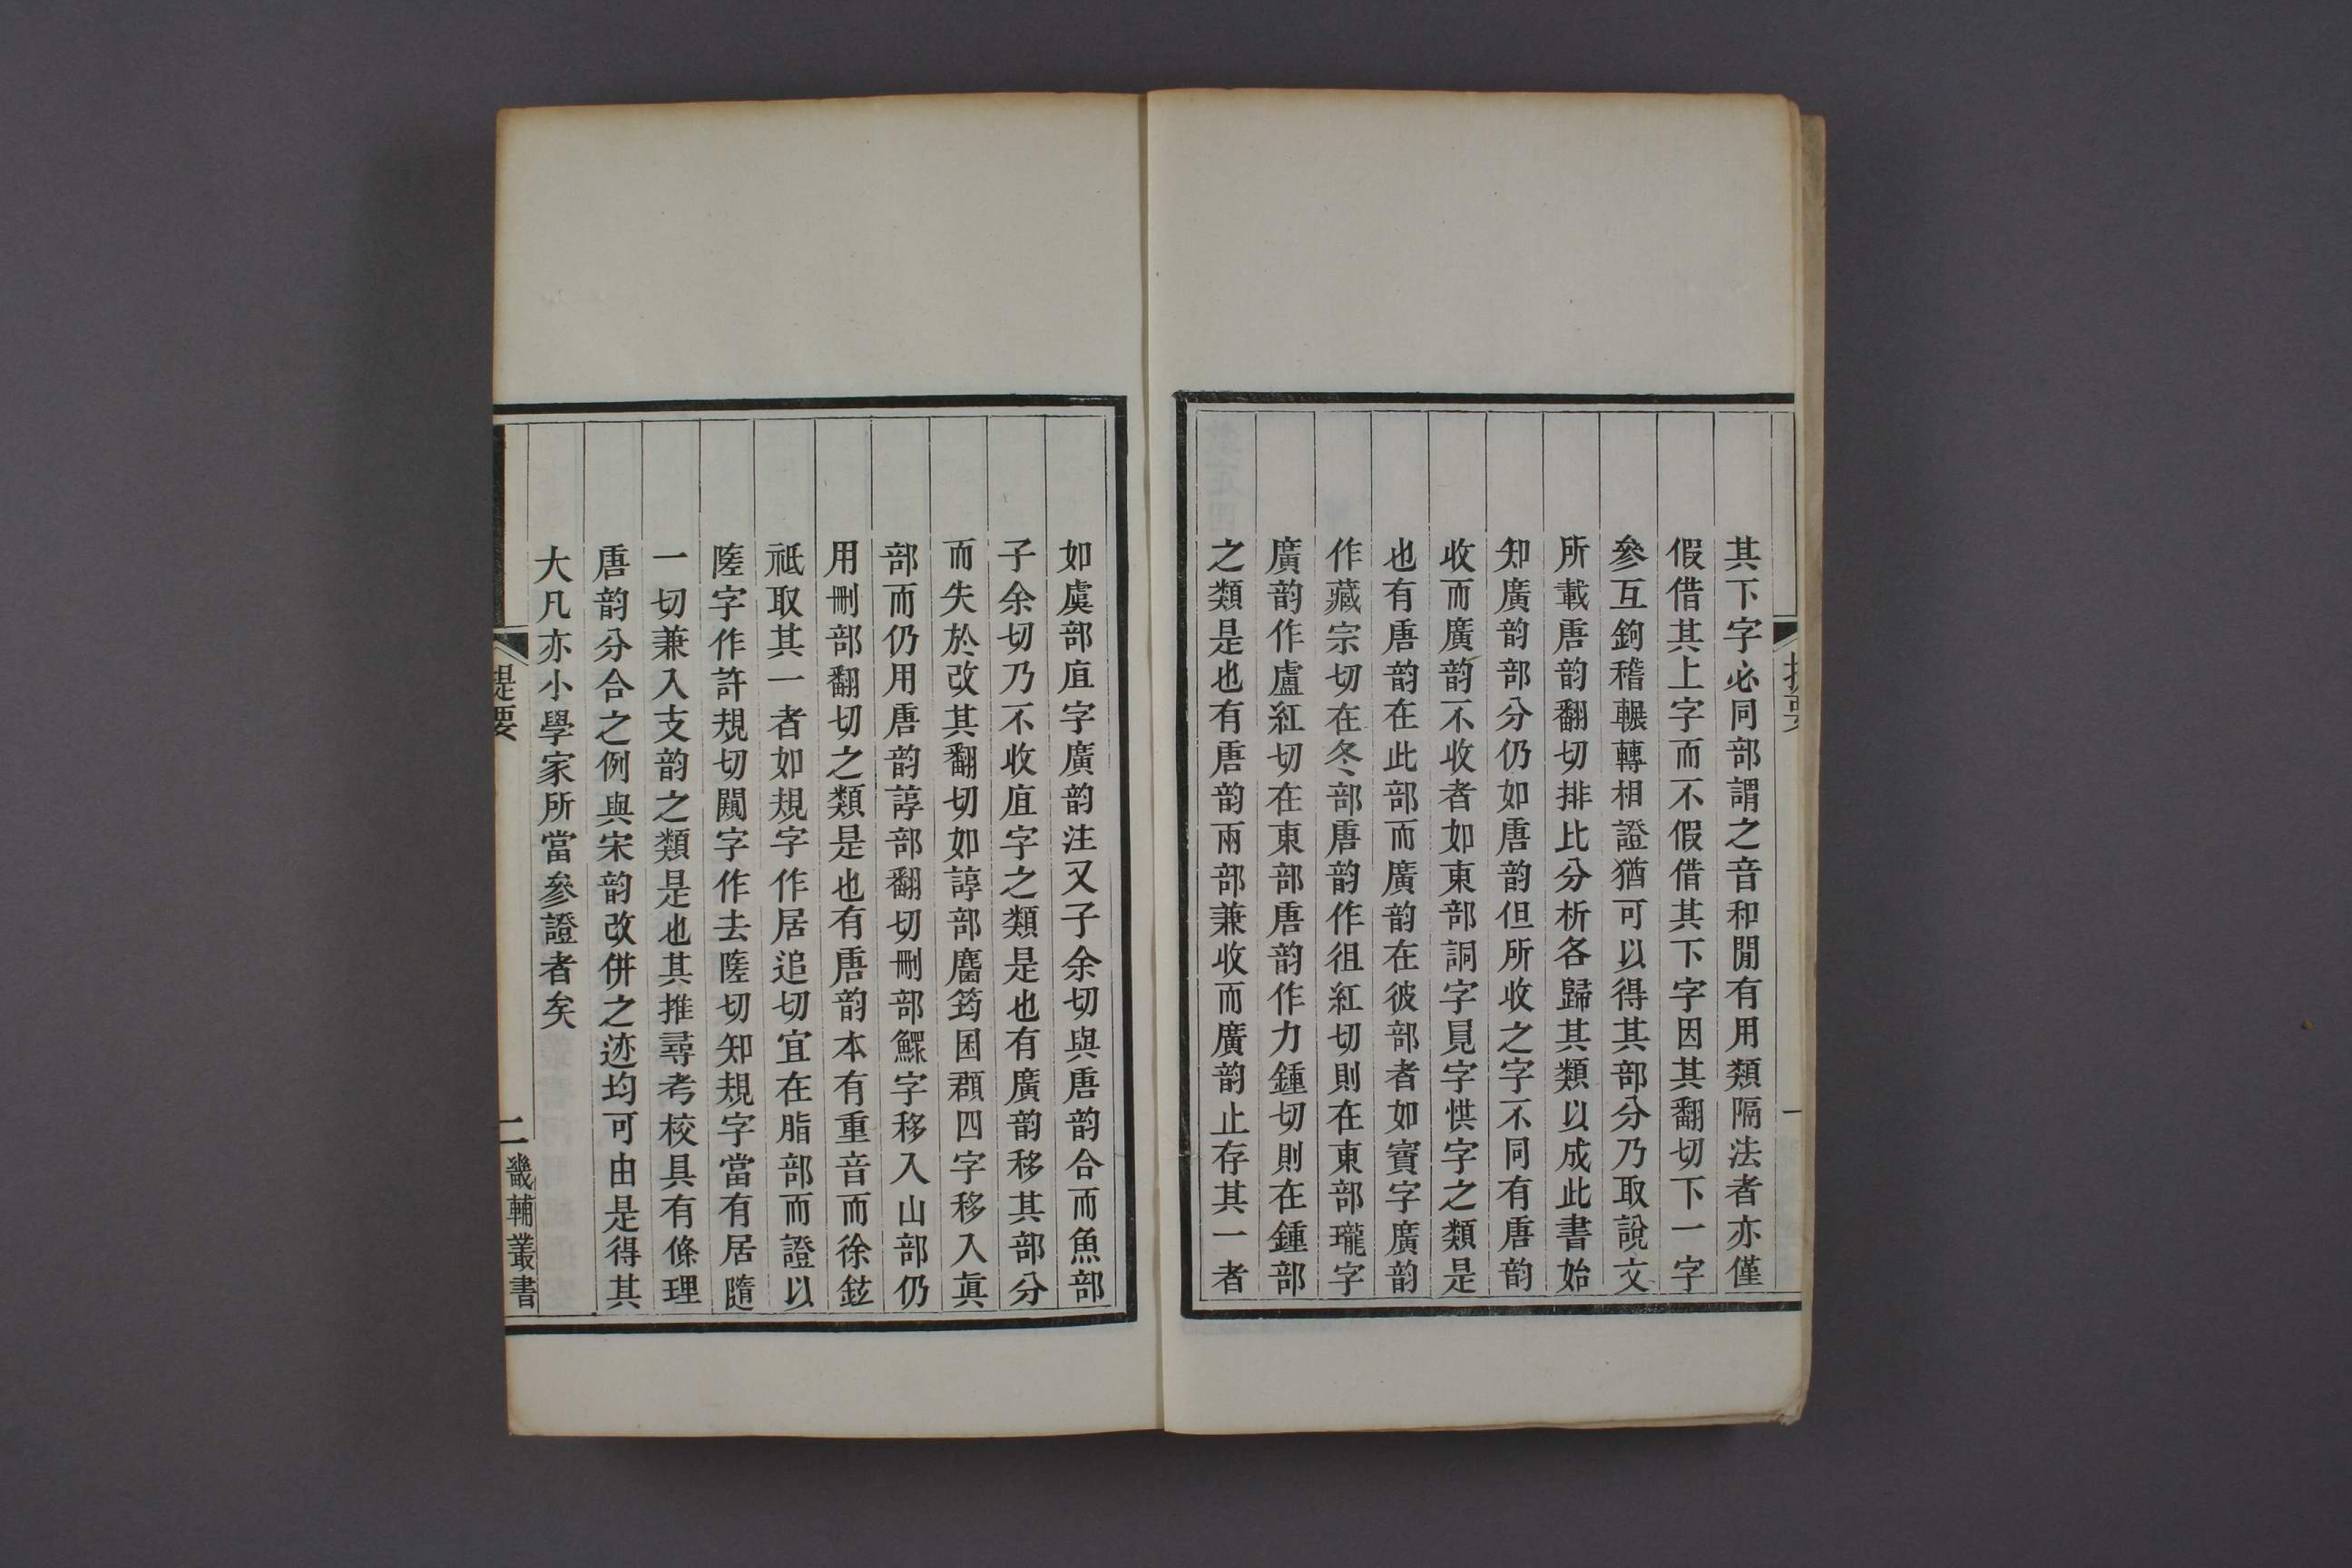 其下字必同部謂之音和閒有用類隔法者亦僅
假借其上字而不假借其下字因其翻切下一字
參互鉤稽輾轉相證猶可以得其部分乃取說文
所載唐韵翻切排比分析各歸其類以成此書始
知廣韵部分仍如唐韵但所收之字不同有唐韵
收而廣韵不收者如東部詷字見字㤨字之類是
也有唐韵在此部而廣韵在彼部者如賨字廣韵
作藏宗切在冬部唐韵作徂紅切則在東部瓏字
廣韵作盧紅切在東部唐韵作力鍾切則在鍾部
之類是也有唐韵兩部兼收而廣韵止存其一者
提要
一
如虞部㡹字廣韵注又子余切與唐韵合而魚部
子余切乃不收㡹字之類是也有廣韵移其部分
而失於改其翻切如諄部麕筠囷頵四字移入眞
部而仍用唐韵諄部翻切刪部鰥字移入山部仍
用刪部翻切之類是也有唐韵本有重音而徐鉉
祇取其一者如規字作居追切宜在脂部而證以
隓字作許規切闚字作去隓切知規字當有居隨
一切兼入支韵之類是也其推尋考校具有條理
唐韵分合之例與宋韵改併之迹均可由是得其
大凡亦小學家所當參證者矣
提要
二
畿輔叢書